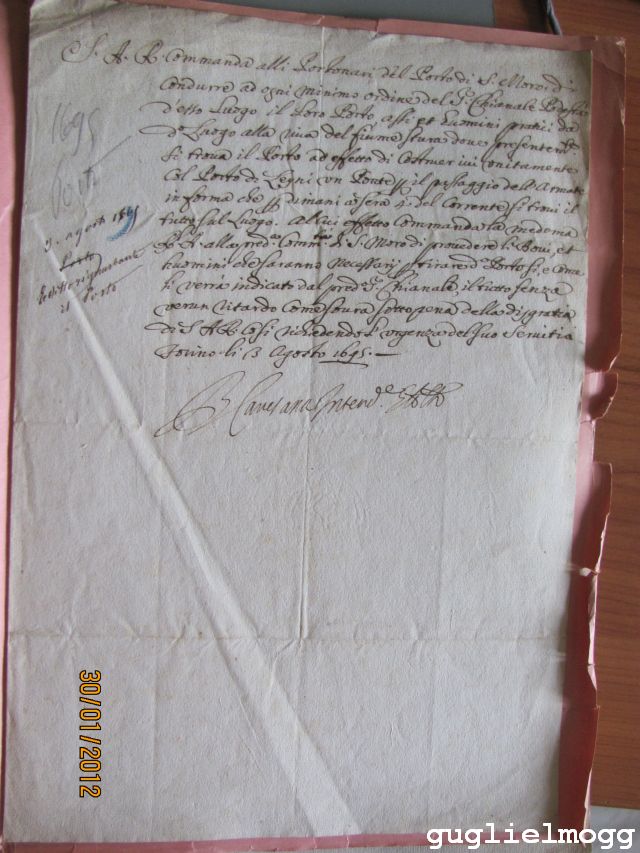 S. A. R. Commanda alli Portonari del Porto di S. Moro, di
Condurre ad ogni minimo ordine del Sr. Chianale
d'esso Luogo il loro Porto assi et huomini pratici
Luogo alla riva del fiume stura dove presentem.te
si trova il Porto ad effetto di Costruer ivi unitamente
Col Porto di Legni un Ponte p il passaggio dell'Armata
in forma che p dimani a sera 4. del Corrente si trovi il
tutto sul Luogo. Al cui effetto Commanda la medema
R. A. alla pred.a Comm.tà di S. Moro di provedere li Bovi, et
huomini che saranno necessarij p tirare d.o Porto si, e Come
li verrà indicato dal pred.o Sr. Chianale, il tutto senza
verun ritardo Come soura sotto pena della disgratia
di S. A. R. Così richiedendo l'urgenza del suo Servitio
Torino li 3 Agosto 1695.
Intend.e
1695
Porto
3. agosto 1695
Porto
il Porto
30/01/2012
guglielmogg